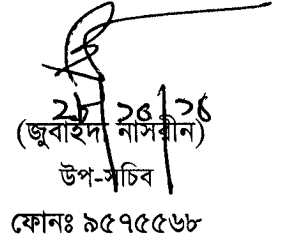 ২৮|১০|১৬
(জুবাইদা নাসরীন)
উপ-সচিব
ফোনঃ ৯৫৭৫৫৬৮